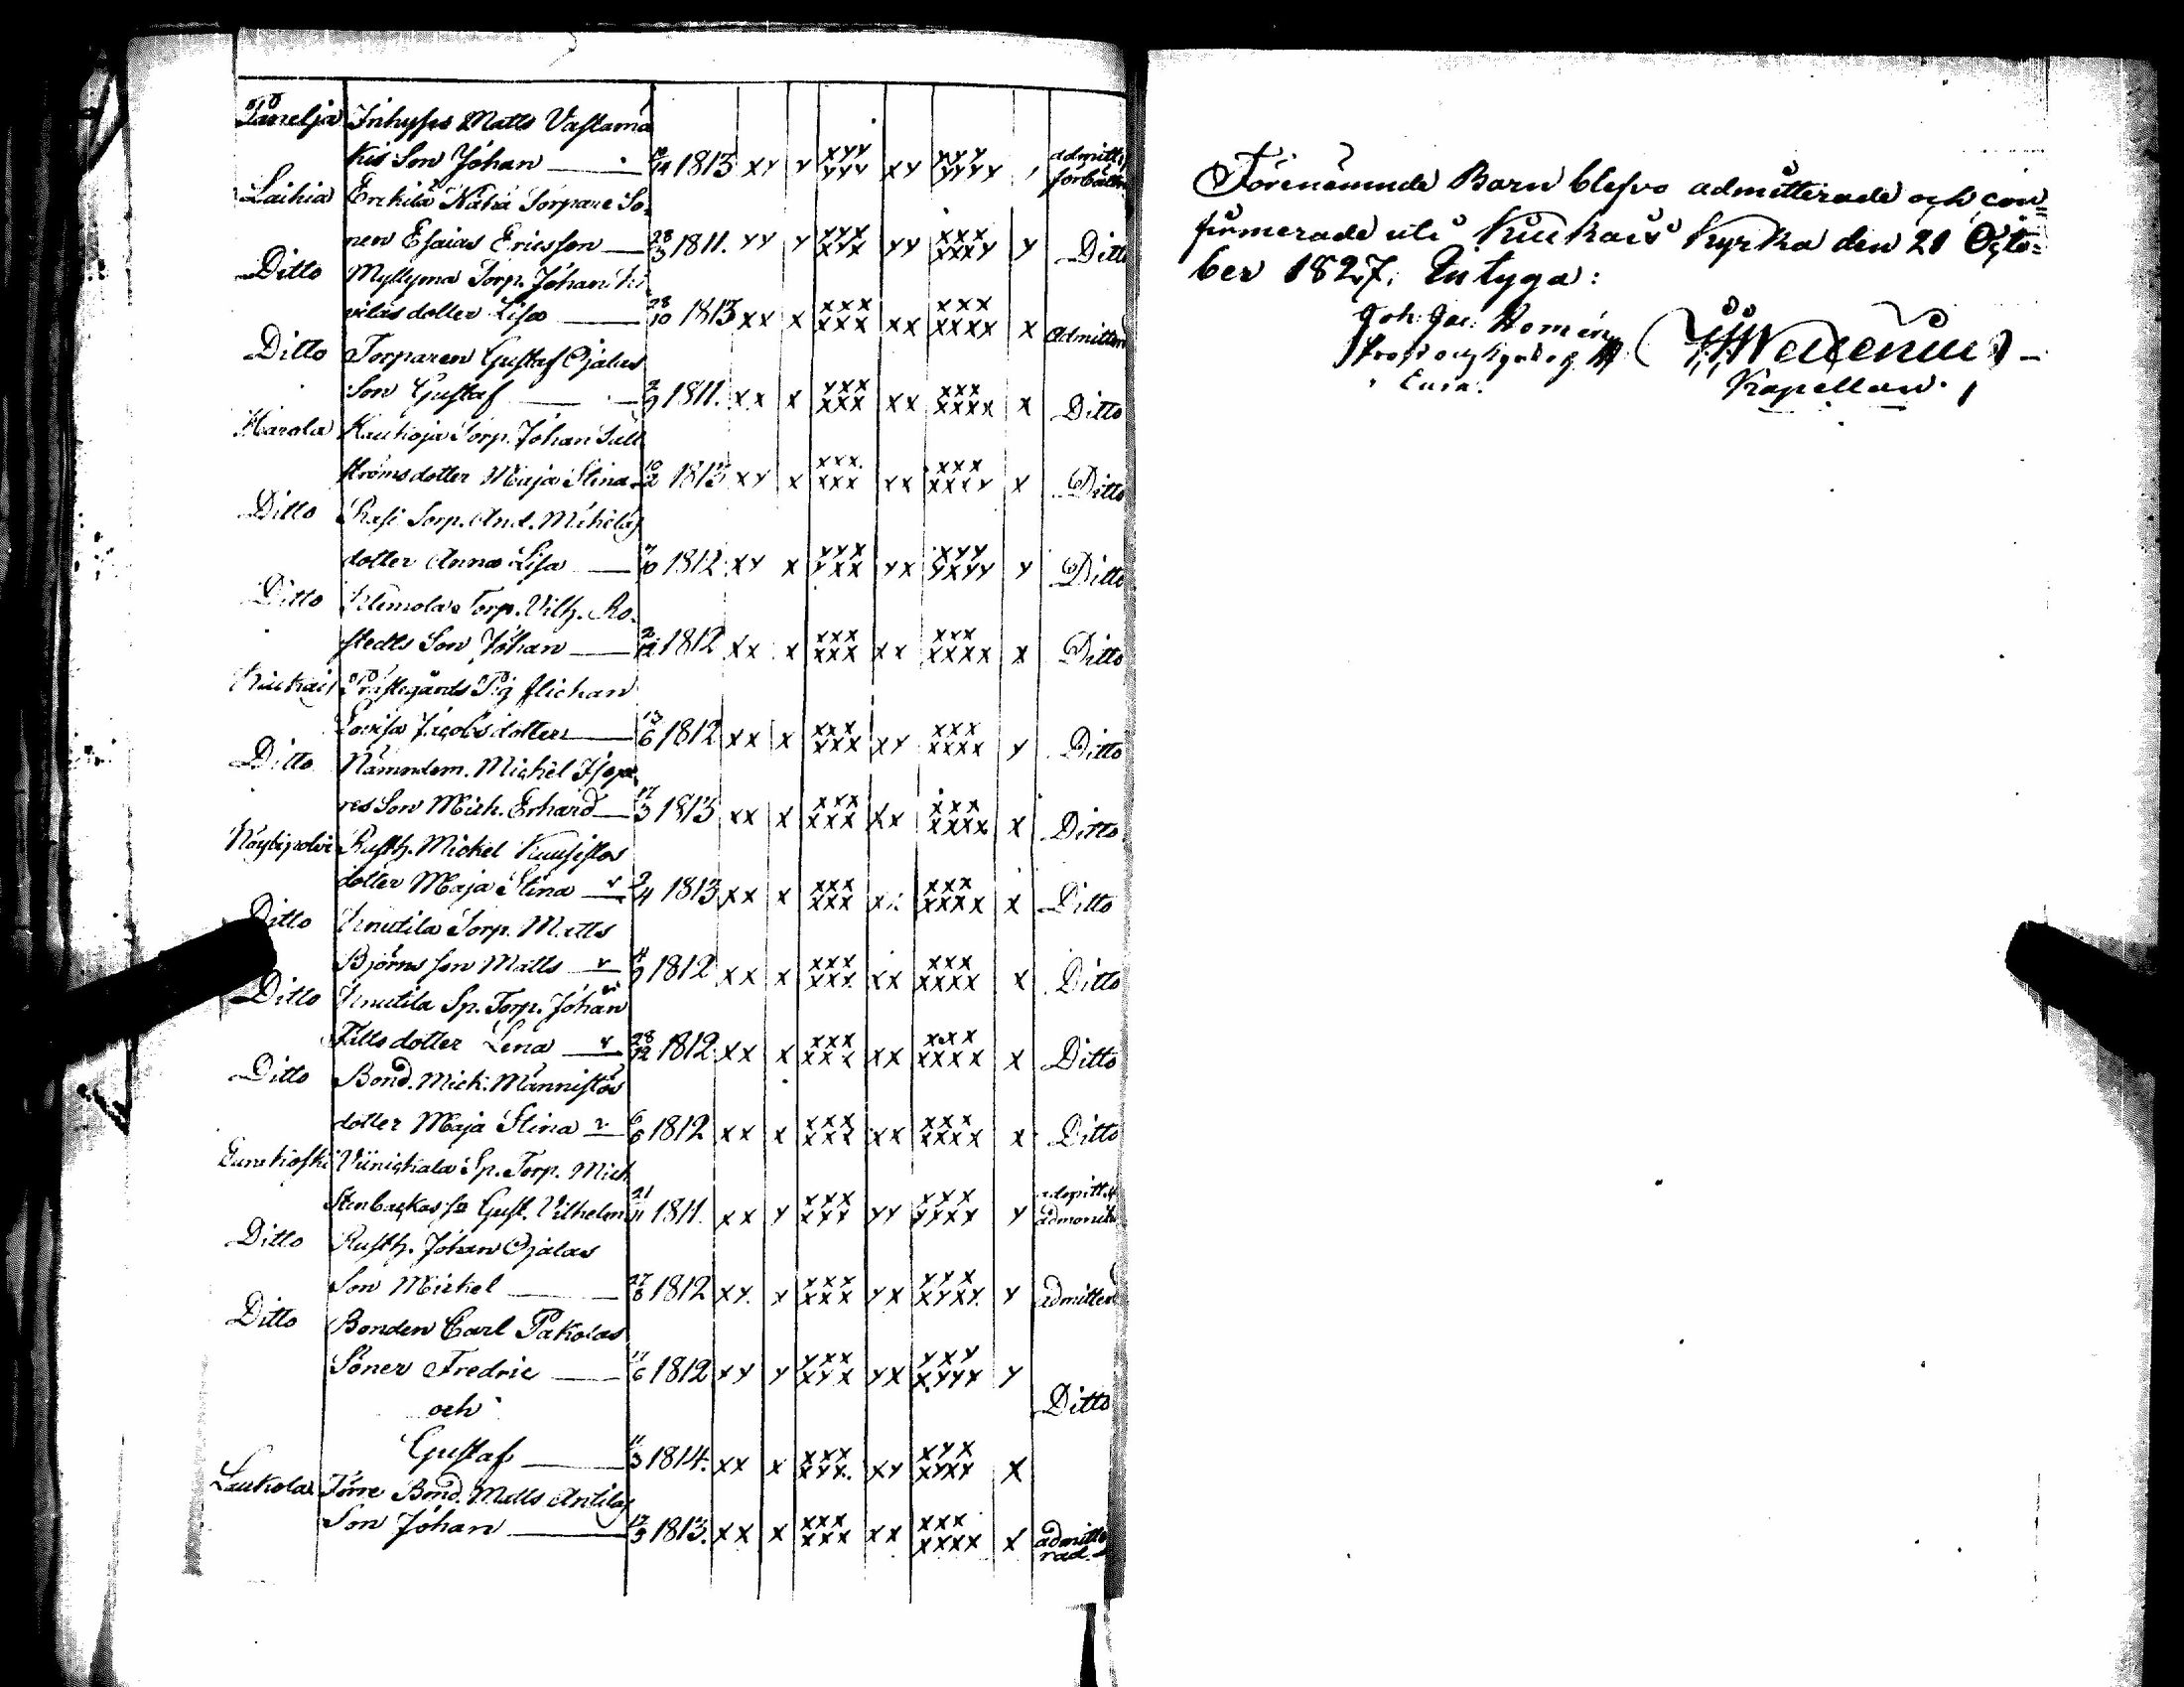 Tånelja Inhyses Matts Vastamä
kis Son Johan 1813 xy y xyy yyy xy yyy yyyy
Laihia Erckilä Torpare So,
nen Esaias Ericsson 28/3 1811. yy y xyx xyx yy xxx xxxy y Ditto
Ditto Myllyma Torp. Johan
vilas dotter Lisa 28/10 1813 xx x xxx xxx xx xxx xxxx x Admitterad
Ditto Torparen Gustaf Ojalas
Son Gustaf 1811. xx x xxx xxx xx xxx xxxx x Ditto
Harola Kaukoja Torp. Johan Säll
ströms dotter Maja Stina 10/2 1813 xy x xxx xxx yx xxx xxxy x Ditto
Ditto Torp. And. Mikelas
dotter Anna Lisa 1812 xy x yyx yxx yx xyy yxyy y Ditto
Ditto Klemola Torp. Vilh. Ro,
stedts Son Johan 1812 xx x xxx xxx xx xxx xxxx x Ditto
Kiukais Prästegårds Pig flickan
Lovisa Jacobsdotter 13/6 1812 xx x xxx xxx xy xxx xxxx y Ditto
Ditto Nämndem. Michel
res Son Mich. Erhard 17/3 1813 xx x xxx xxx xx xxx xxxx x Ditto
Köylipolvi Rusth. Mickel Kuusistos
dotter Maja Stina v 2/4 1813 xx x xxx xxx xxx xxxx x Ditto
Ditto Knutila Torp. Matts
Björns son Matts v 1812 xx x xxx xxx xx xxx xxxx x Ditto
Ditto Knutila Sp. Torp. Johan
Fills dotter Lena v 28/12 1812 xx x xxx xxx xx xxx xxxx x Ditto
Ditto Bond. Mich. Männistös
dotter Maja Stina v 6/6 1812 xx x xxx xxx xx xxx xxxx x Ditto
Eurakoski Viinickala Sp. Torp. Mich
Stenbackas so Gust. Vilhelm 21/11 1811. xx y xxx xyy yy xxx yyxy y
Ditto Rusth. Johan Ojalas
Son Mickel 27/8 1812 xy y xxx xxx yx yyx xyxy y admitterad
Ditto Bonden Carl Pakolas
Söner Fredric 17/6 1812 xy y yxx xyx yx yxy xyyx y
och Ditto
Gustaf 11/3 1814. xx x xxx xyx xy xyx xyxy x
Laukola Förre Bond. Matts Antilas
Son Johan 12/3 1813. xx x xxx xxx xx xxx xxxx x admitte
rad
Förenämnde Barn blefvo admitterade och con=
firmerade uti Kiukais Kyrka den 21 Octo=
ber 1827. Intyga:
Joh: Jac: Homén
Prost och Kyrkoh.
Eura.
Kapellan.